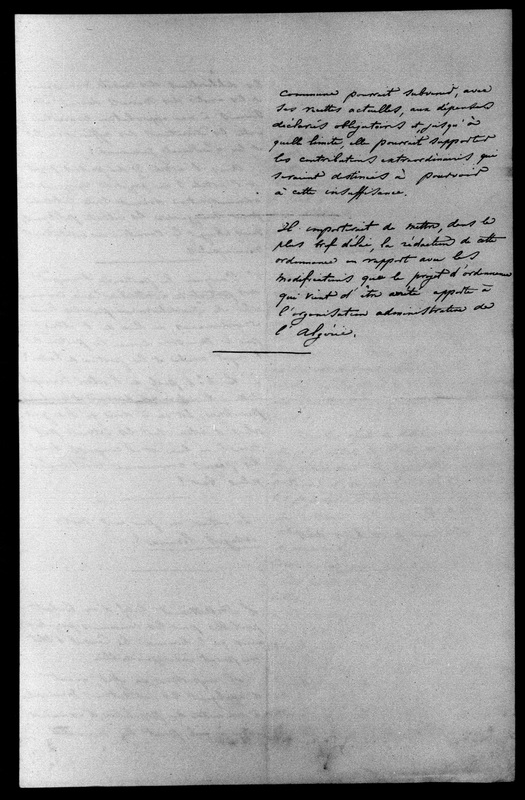 commune pourrait subvenir, avec
ses recettes actuelles, aux dépenses
déclarées obligatoires et, jusqu'à
quelle limite, elle pourrait supporter
les contributions extraordinaires qui
seraient destinées à pourvoir
à cette insuffisance.
Il importerait de mettre, dans le
plus bref délai, la rédaction de cette
ordonnance en rapport avec les
modifications que le projet d'ordonnance
qui vient d'être arrêté apporte à
l'organisation administrative de
l'Algérie.